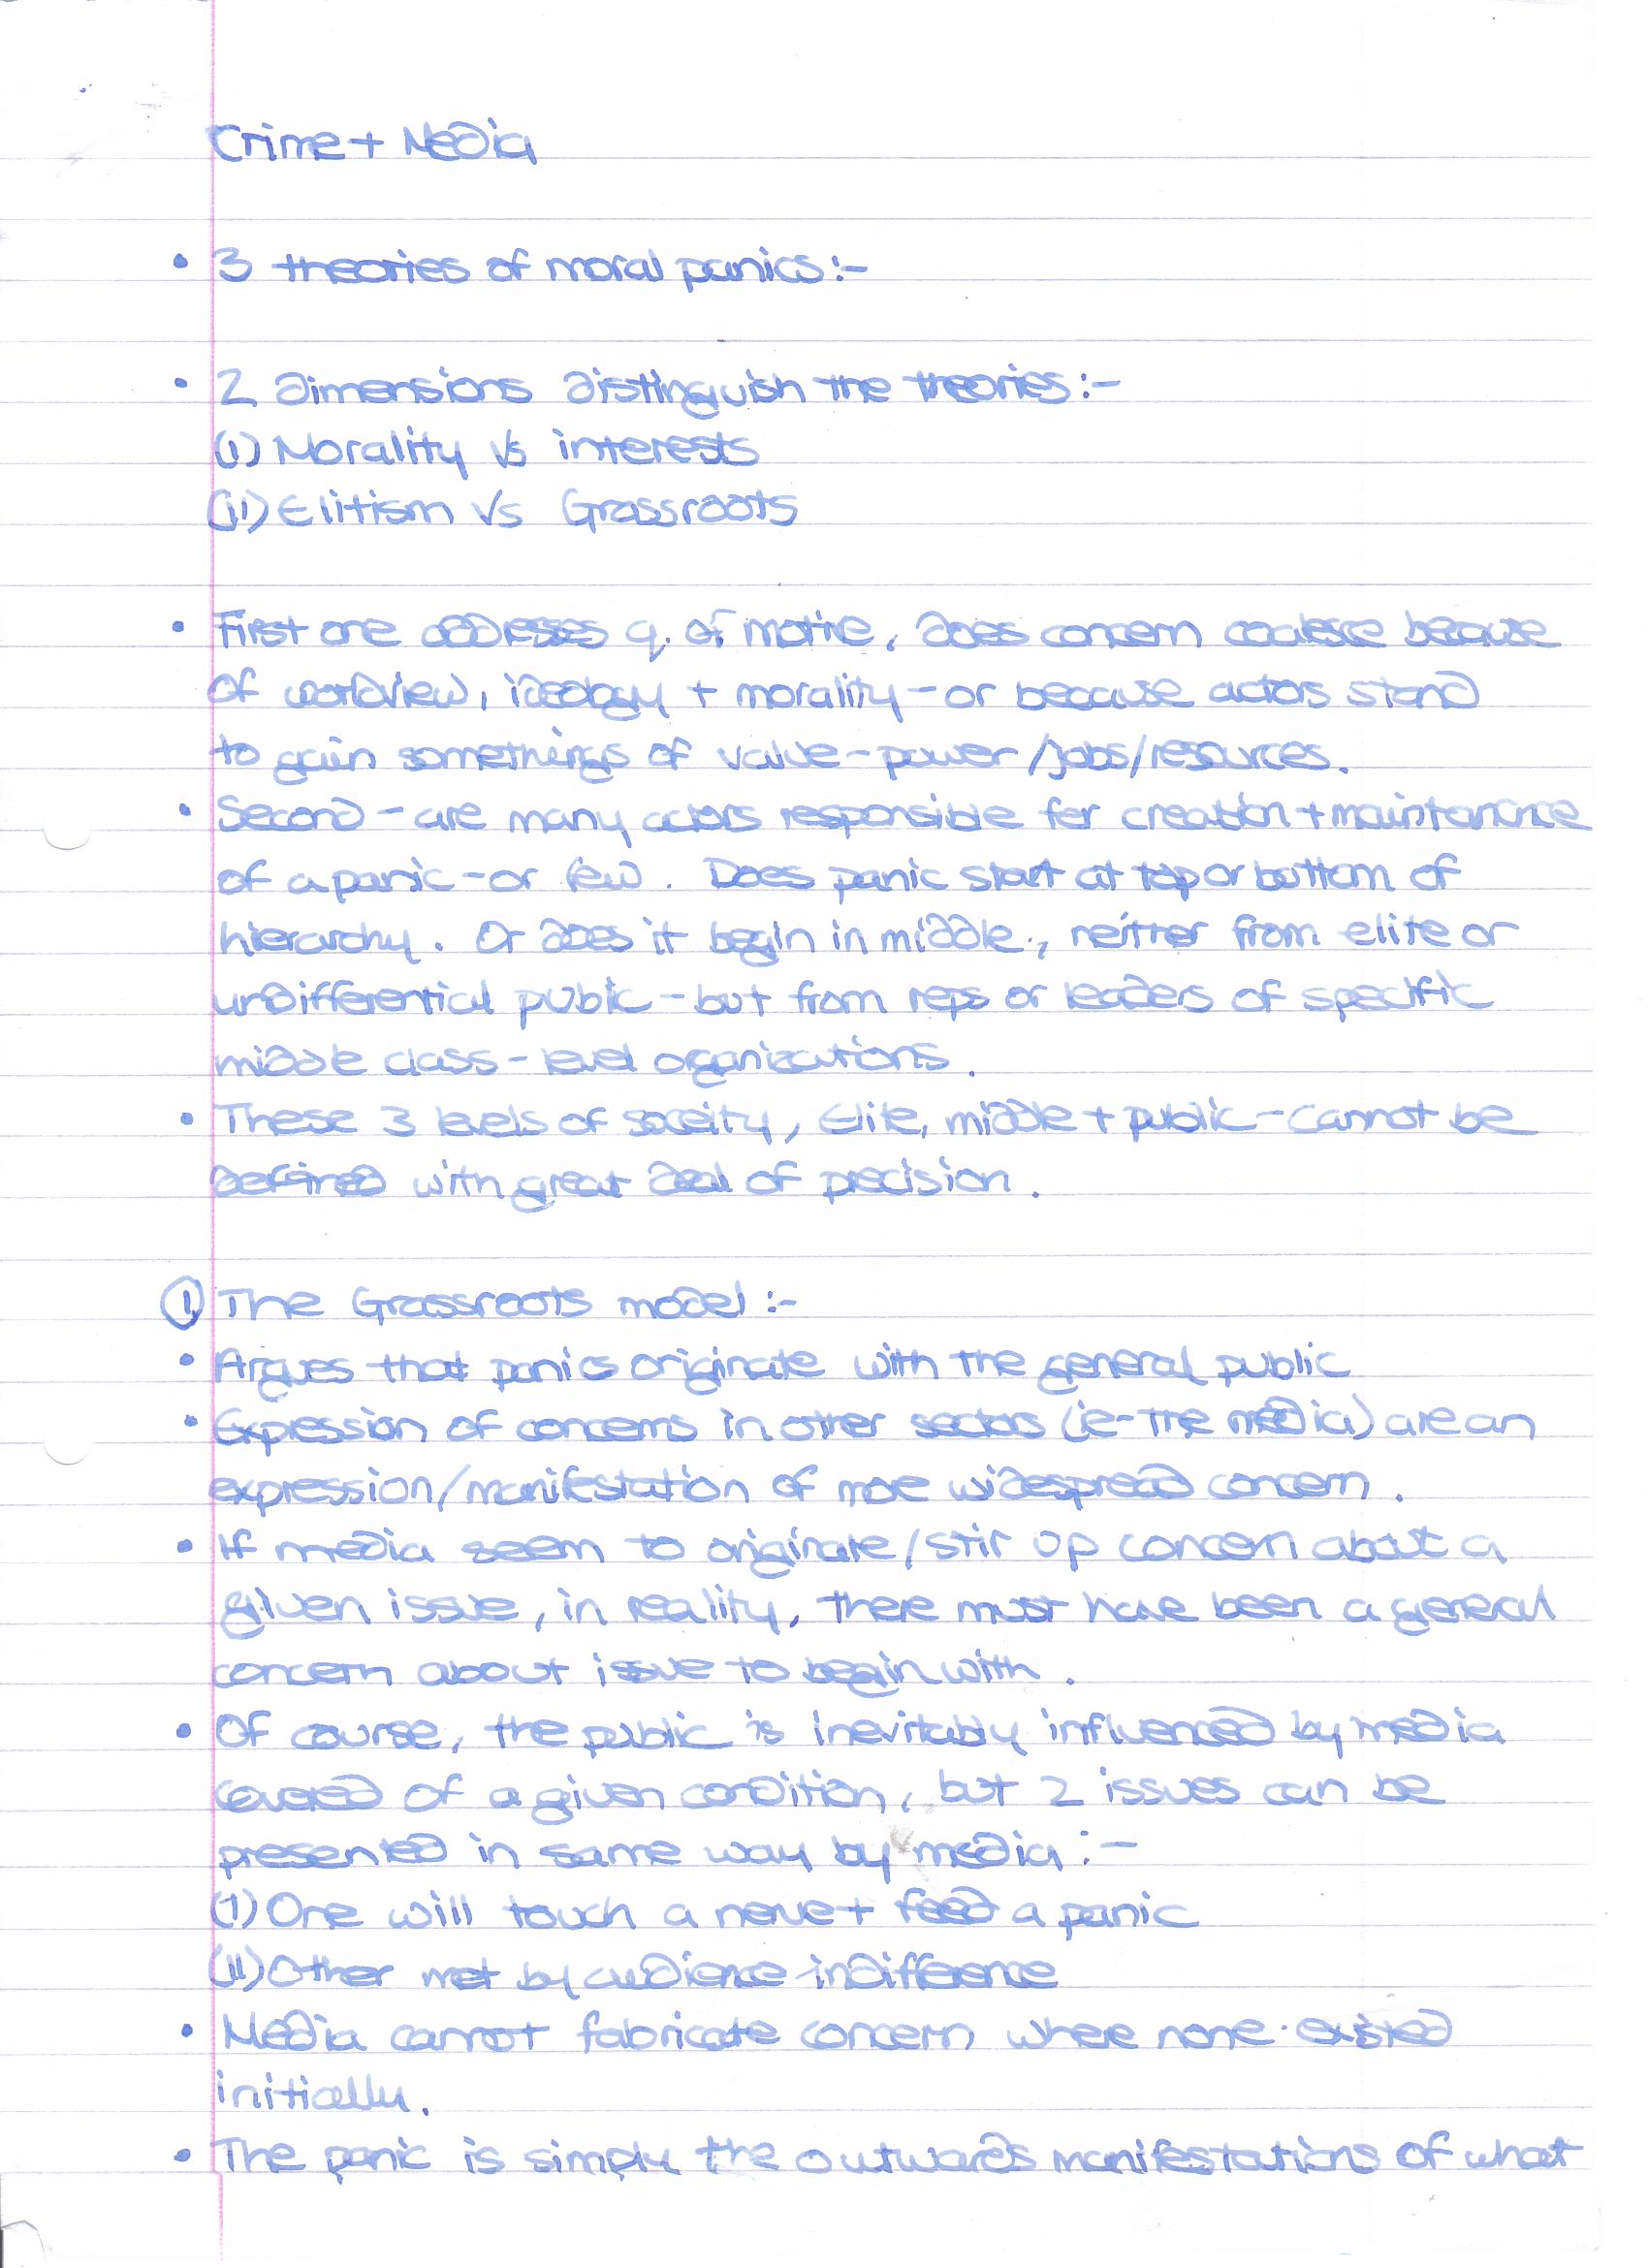 Crime + Media
• 3 theories of moral panics:-
• 2 dimensions distinguish the theories:-
(i) Morality vs interests
(ii) Elitism vs Grassroots
• First one addresses q. of motive, does concern coalesce because
of worldview, ideology + morality - or because actors stand
to gain somethings of value - power/jobs/resources.
• Second - are many actors responsible for creation + maintanance
of a panic - or few. Does panic start at top or bottom of
hierarchy. Or does it begin in middle, neither from elite or
undifferential public - but from reps or leaders of specific
middle class - level organizations.
• These 3 levels of soceity, Elite, middle + public - cannot be
defined with great deal of precision.
① The Grassroots model :-
• Argues that panics originate with the general public
• Expression of concerns in other sectors (ie - the media) are an
expression/manifestation of more widespread concern.
• If media seem to originate/stir up concern about a
given issue, in reality, there must have been a general
concern about issue to begin with.
• Of course, the public is inevitably influenced by media
covered of a given condition, but 2 issues can be
presented in same way by media:-
(i) One will touch a nerve + feed a panic
(ii) Other met by audience indifference
• Media cannot fabricate concern where none existed
initially.
• The panic is simply the outwards manifestations of what